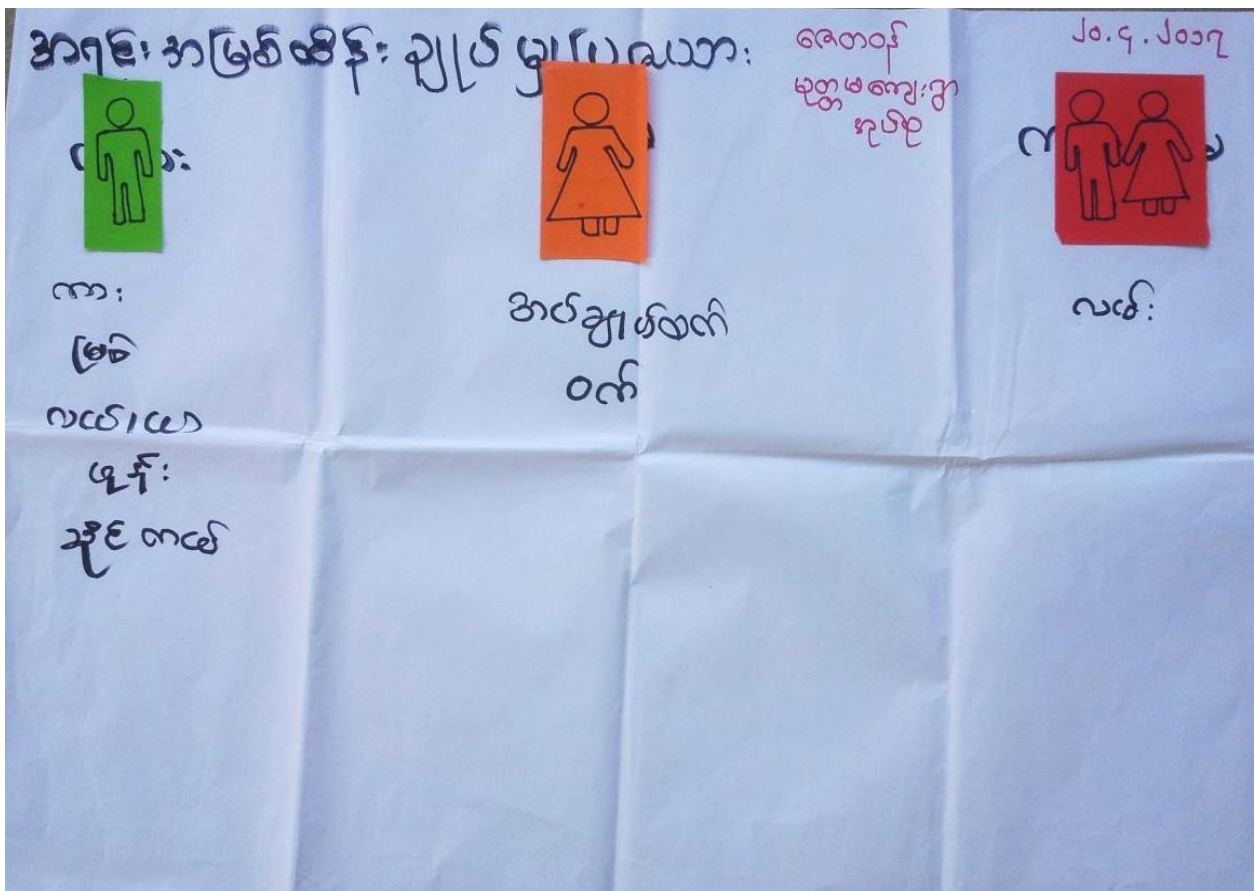 အရင်းအမြစ်ထိန်းချုပ်မှုပြဇယား
ဇေတဝန်
မုတ္တမကျေးရွာ
အုပ်စု
၂၀.၄.၂၀၁၇
ကား
မြစ်
လယ်/ယာ
ဖုန်း
ဆိုင်ကယ်
အပ်ချုပ်စက်
ဝက်
လမ်း